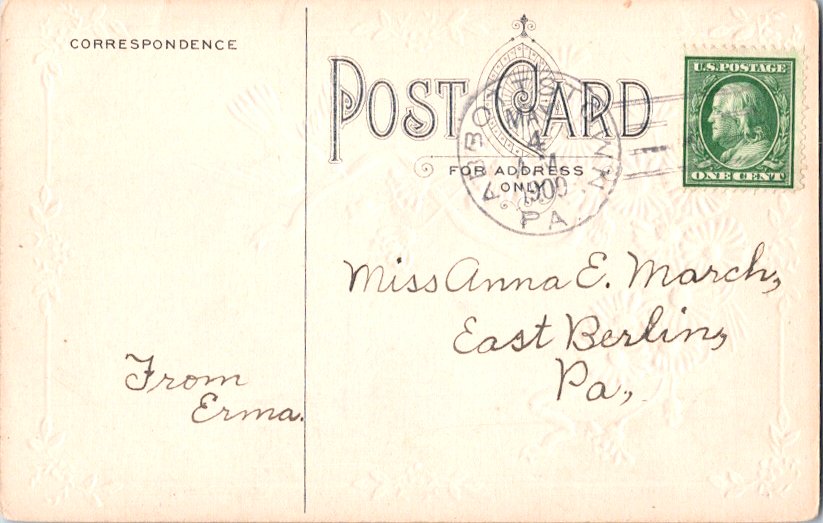 CORRESPONDENCE
POST CARD
FOR ADDRESS
ONLY
ABBOTTSTOWN
MAY
4
1909
PA
U.S. POSTAGE
ONE CENT
Miss Anna E. March,
East Berlin,
Pa.,
From
Erma.